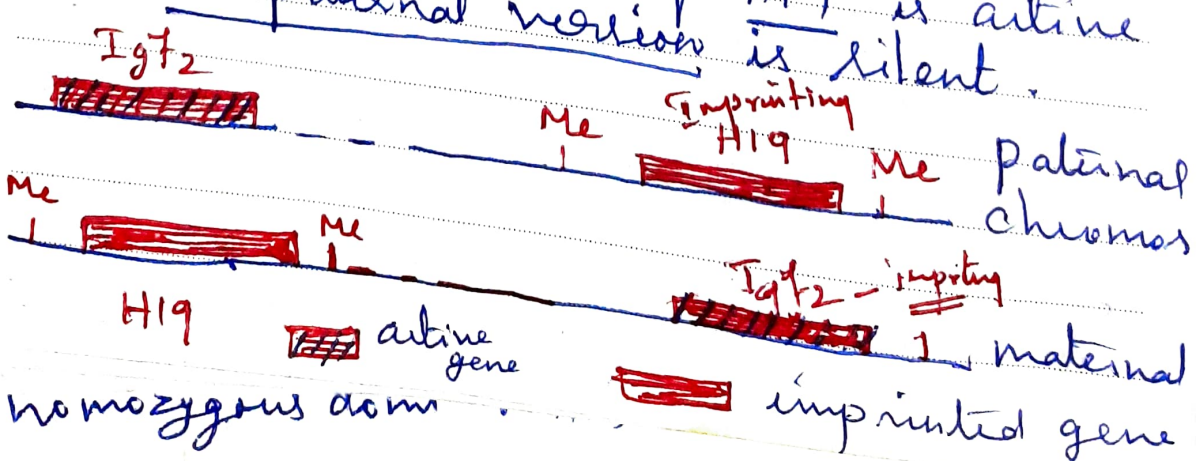 version is active
is silent.
Igf2
Imprinting
Me H19 Me paternal
chromos
Me Me
H19 Igf2 - imprting
active
gene
1 maternal
homozygous dom . imprinted gene